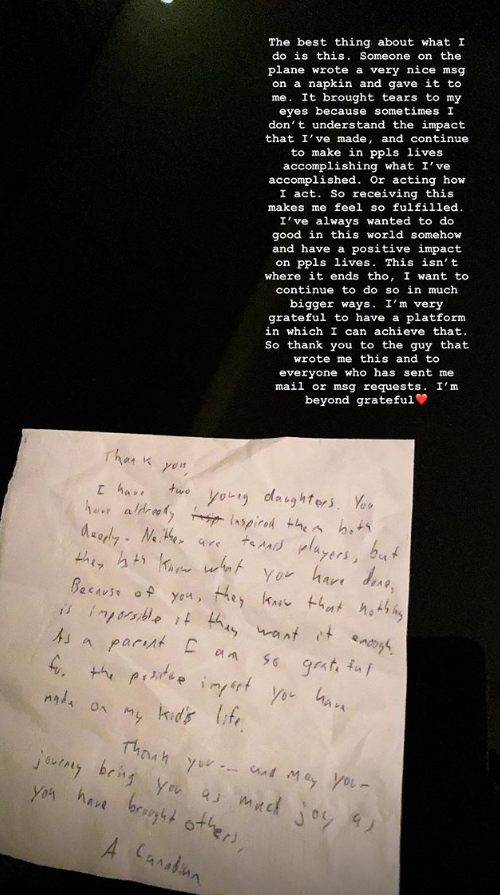 The best thing about what I
do is this. Someone on the
plane wrote a very nice msg
on a napkin and gave it to
me. It brought tears to my
eyes because sometimes I
don’t understand the impact
that I’ve made, and continue
to make in ppls lives
accomplishing what I’ve
accomplished. Or acting how
I act. So receiving this
makes me feel so fulfilled.
I’ve always wanted to do
good in this world somehow
and have a positive impact
on ppls lives. This isn’t
where it ends tho, I want to
continue to do so in much
bigger ways. I’m very
grateful to have a platform
in which I can achieve that.
So thank you to the guy that
wrote me this and to
everyone who has sent me
mail or msg requests. I’m
beyond grateful❤️
Thank you,
I have two young daughters. You
have aldready insp inspired them both
deeply. Neither are tennis players, but
they both know what you have done.
Because of you, they know that nothing
is impossible if they want it enough.
As a parent I am so grateful
for the positive impact you have
made on my kid's life.
Thank you -- and may you-
journey bring you as much joy as
you have brought others.
A Canadian